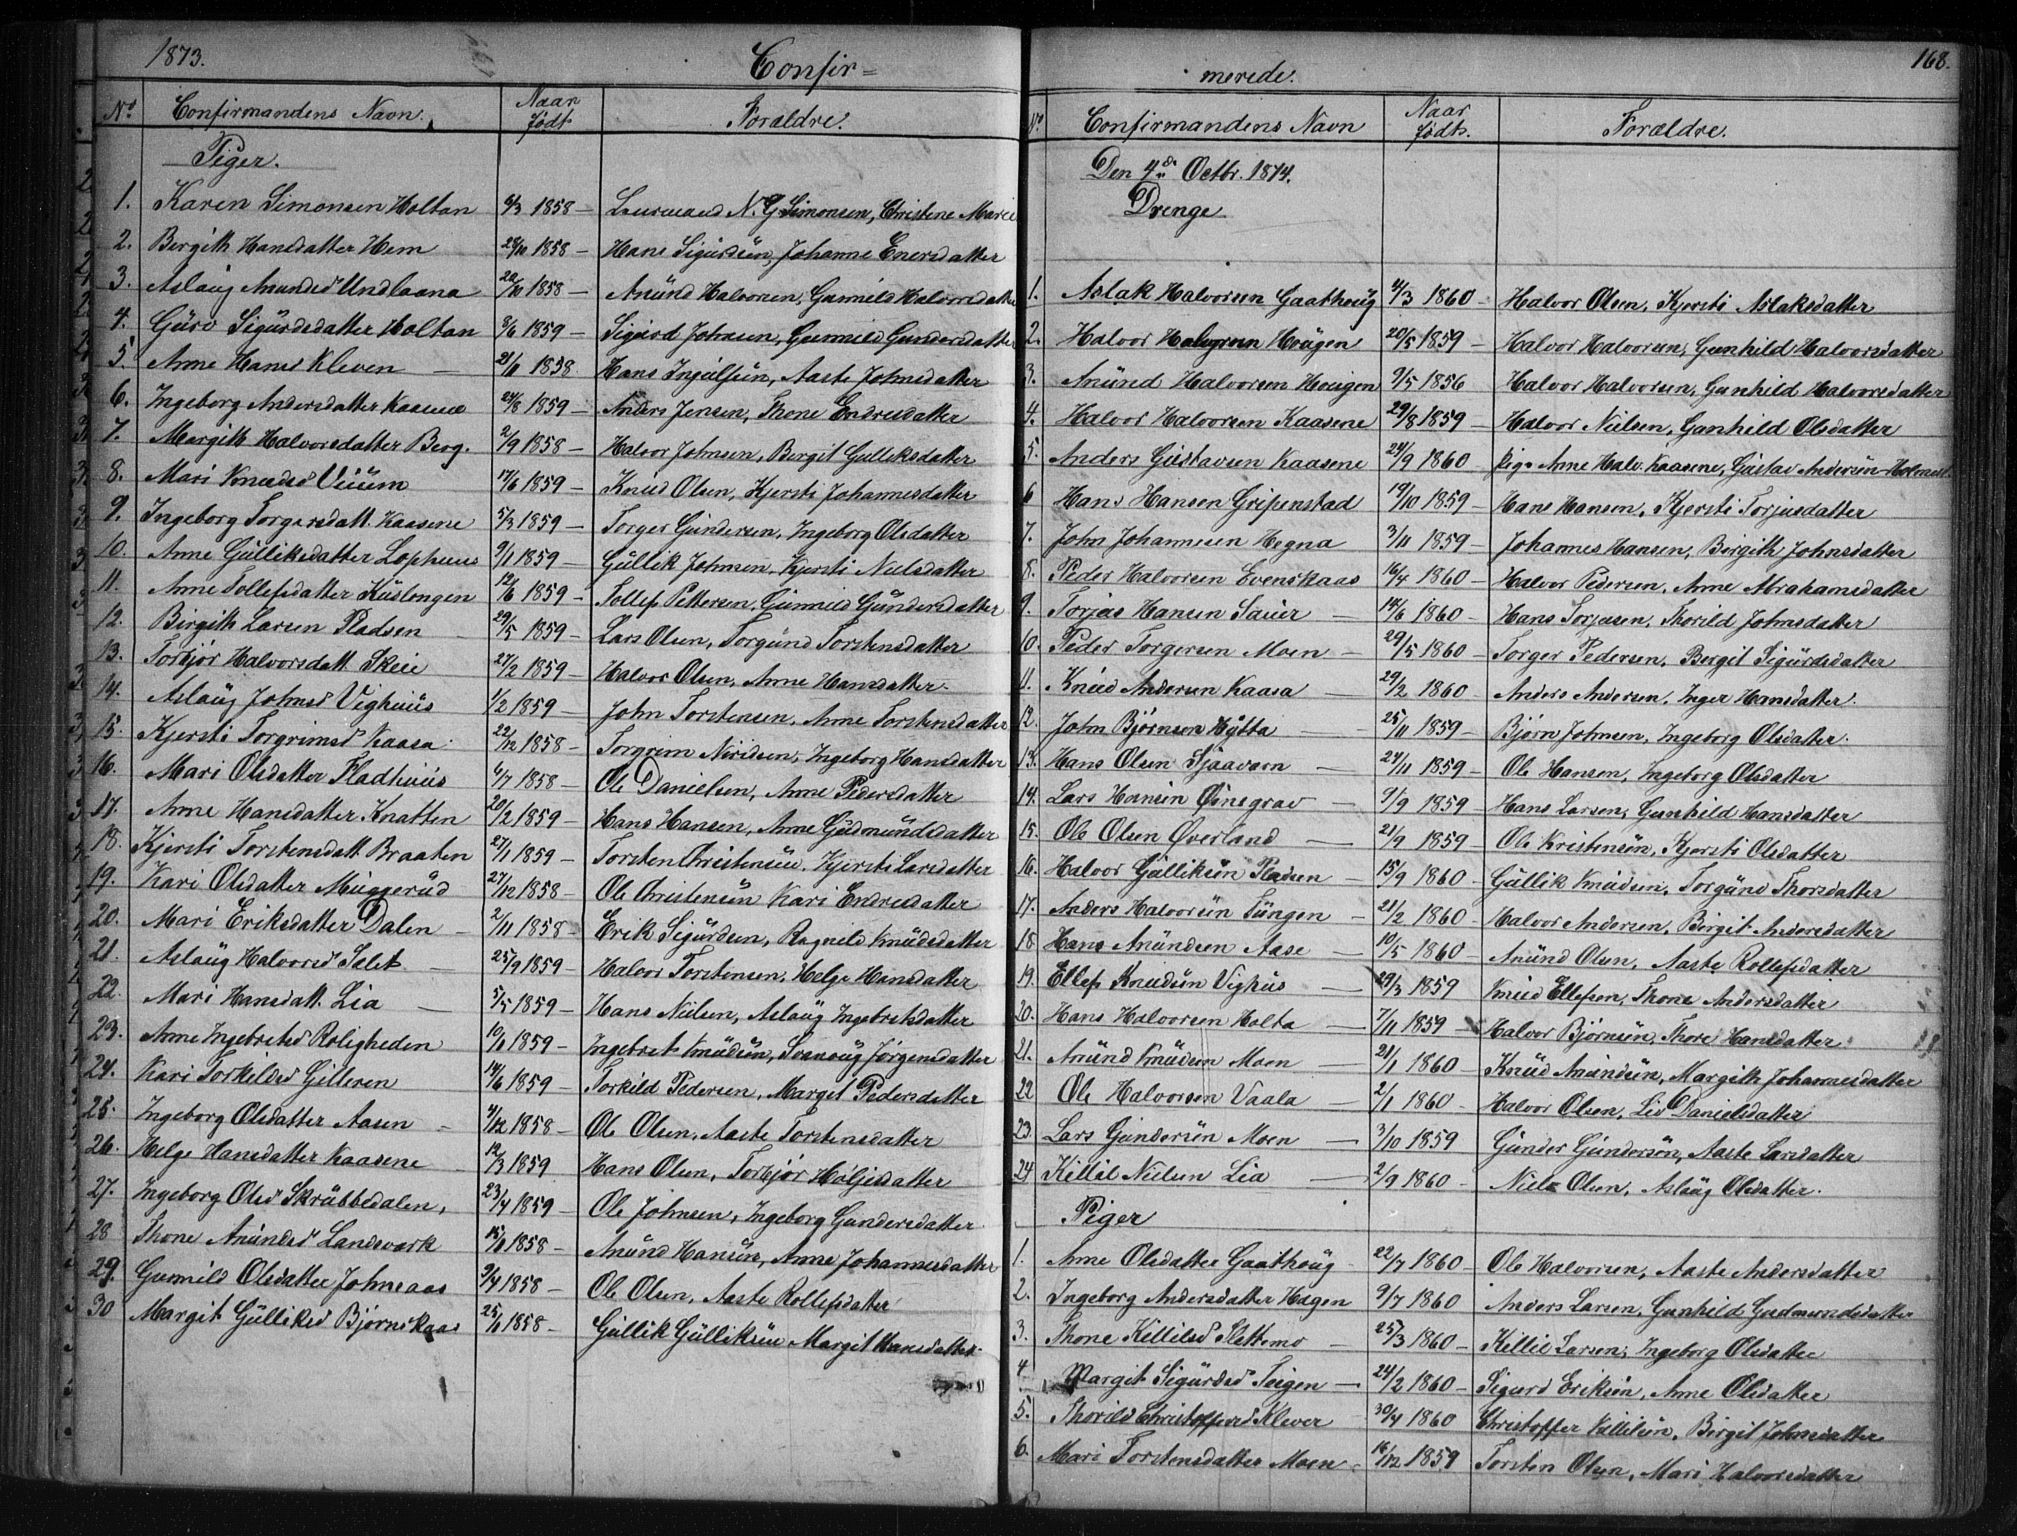 1873.
Confir=
No Confirmandens Navn. Naar født Forældre.
Piger.
1. Karen Simonsen Holtan 6/3 1858 – N. G Simonsen, Christene Marie
2. Bergith Hansdatter Hem 28/10 1858 – Hans Sigurdsen, Johanne Enersdatter
3. Aslaug Anundsd Undlaana 1858 – Anund Halvorsen, Gunnild Halvorsdatter
4. Guro Sigurdsdatter Holtan 8/6 1859 – Sigurd Johnsen, Gunnild Gundersdatter
5. Anne Hansd Kleven – 21/6 1858 Hans Ingulfsen, Aaste Johnsdatter
6. Ingeborg Andersdatter Kaasene 24/8 1859 – Anders Jensen, Thone Endresdatter
7. Margith Halvorsdatter Berg. 2/9 1858 – Halvor Johnsen, Bergit Gulliksdatter
8. Mari Knudsd Vium 17/6 1859 – Knud Olsen, Kjersti Johannesdatter
9. Ingeborg Torgersdatt. Kaasene 5/3 1859 – Torger Gundersen, Ingeborg Olsdatter
10. Anne Gulliksdatter Lophuus 9/11 1859 – Gullik Johnsen, Kjersti Nielsdatter
11. Anne Tollefsdatter Kuslongen 12/6 1859 – Tollef Pettersen, Gunnild Gundersdatter
12. Birgith Larsen Pladsen – 29/5 1859 – Lars Olsen, Torgund Torstensdatter
13. Torbjør Halvorsdatt. Skeie 27/2 1859 – Halvor Olsen, Anne Hansdatter.
14. Aslaug Johnsd Vighuus 1/2 1859 – John Torstensen, Anne Torstensdatter
15. Kjersti Torgrimsd Kaasa 22/12 1858 – Torgrim Niridsen, Ingeborg Hansdatter
16. Mari Olsdatter Fladhuus 6/7 1858 – Ole Danielsen, Anne Pedersdatter
17. Anne Hansdatter Knatten 20/2 1859 – Hans Hansen, Anne Gudmundsdatter
18. Kjersti Torstensdatt Braaten 27/1 1859 – Torsten Christensen, Kjersti Larsdatter
19. Kari Olsdatter Muggerud 27/12 1858 – Ole Christensen Kari Endresdatter
20. Mari Eriksdatter Dalen – 2/11 1858 – Erik Sigurdsen, Ragnild Knudsdatter
21. Aslaug Halvorsd – 25/9 1859 – Halvor Torstensen, Helge Hansdatter
22. Mari Hansdatt. Lia – 5/5 1859 – Hans Nielsen, Aslaug Ingebretsdatter
23. Anne Ingebretsd Roligheden 10/1 1859 – Ingebret Knudsen, Jørgensdatter
24. Kari Torkildsd 14/6 1859 – Torkild Pedersen, Margit Pedersdatter
25. Ingeborg Olsdatter Aasen – 4/12 1858 – Ole Olsen, Aaste Torstensdatter
26. Helge Hansdatter Kaasene – 12/3 1859 Hans Olsen, Torbjør Holjesdatter
27. Ingeborg Olsd Skrubbedalen, 23/4 1859 – Ole Johnsen, Ingeborg Gundersdatter
28 Thone Anundsd Landsverk 15/11 1858 – Anund Hansen, Anne Johannesdatter
29. Gunnild Olsdatter Johnsaas 9/4 1858 – Ole Olsen, Aaste Rollefsdatter
30 Margit Gulliksd Bjørnskaas 25/11 1858 – Gullik Gulliksen Margit Hansdatter.
168.
merede.
No Confirmandens Navn Naar født. Forældre.
Den 4de Octbr. 1874.
Drenge
1. Aslak Halvorsen Gaathoug 4/3 1860 – Halvor Olsen, Kjersti Aslaksdatter
2. Halvor Halvorsen Hougen 20/5 1859 – Halvor Halvorsen, Gunhild Halvorsdatter
3. Anund Halvorsen Hougen 9/5 1856 Halvor Halvorsen, Gunhild Halvorsdatter
4. Halvor Halvorsen Kaasene 29/8 1859 – Halvor Nielsen, Gunhild Olsdatter
5. Anders Gustavsen Kaasene 24/9 1860 Pige Anne Halv. Kaasene, Gustav Andersen
6 Hans Hansen Gripenstad 19/10 1859 – Hans Hansen, Kjersti Torjusdatter
7. John Johannesen Hegna 3/11 1859 – Johannes Hansen, Birgith Johnsdatter
8. Peder Halvorsen Evenskaas 16/4 1860 – Halvor Pedersen, Anne Abrahamsdatter
9. Torjus Hansen Sauer – 14/6 1860 – Hans Torjusen, Thorild Johnsdatter
10. Peder Torgersen Moen – 29/5 1860 – Torger Pedersen, Bergit Sigurdsdatter
11. Knud Andersen Kaasa – 29/2 1860 – Anders Andersen, Inger Hansdatter.
12. John Bjørnsen Hytta – 25/11 1859 – Bjørn Johnsen, Ingeborg Olsdatter.
13. Hans Olsen Sjaavarn – 24/11 1859 – Ole Hansen, Ingeborg Olsdatter
14. Lars Hansen Øsnegrav – 9/9 1859 – Hans Larsen, Gunhild Hansdatter
15. Ole Olsen Øverland – 21/9 1859 – Ole Kristensen, Kjersti Olsdatter
16. Halvor Gulliksen Pladsen – 15/9 1860 – Gullik Knudsen, Torgund Thorsdatter
17. Anders Halvorsen Tungen – 21/2 1860 – Halvor Andersen, Birgit Andersdatter
18. Hans Anundsen Aase – 10/5 1860 – Anund Olsen, Aaste Rollefsdatter
19. Ellef Knudsen Vighus – 29/3 1859 Knud Ellefsen, Thone Andersdatter
20. Hans Halvorsen Holta – 7/11 1859 – Halvor Bjørnsen, Thore Hansdatter
21. Anund Knudsen Moen – 21/1 1860 – Knud Anundsen, Margith Johannesdatter
22 Ole Halvorsen Vaala – 2/1 1860 – Halvor Olsen, Liv Danielsdatter
23. Lars Gundersen Moen – 3/10 1859 Gunder Gundersøn, Aaste Larsdatter
24 Killil Nielsen Lia – 2/9 1860 – Niels Olsen, Aslaug Olsdatter.
Piger
1. Anne Olsdatter Gaathoug 22/7 1860 – Ole Halvorsen, Aaste Andersdatter
2. Ingeborg Andersdatter Hagen 9/7 1860 Anders Larsen, Gunhild Gudmundsdatter
3. Thone Killilsd Slettemo – 25/3 1860 – Killil Larsen, Ingeborg Olsdatter
4. Margit Sigurdsd Teigen – 24/2 1860 – Sigurd Eriksen, Anne Olsdatter
5. Thorild Christoffersd Klever 30/4 1860 Christoffer Killilsen, Birgit Johnsdatter
6. Mari Torstensdatter Moen – 16/12 1859 Torsten Olsen, Mari Halvorsdatter